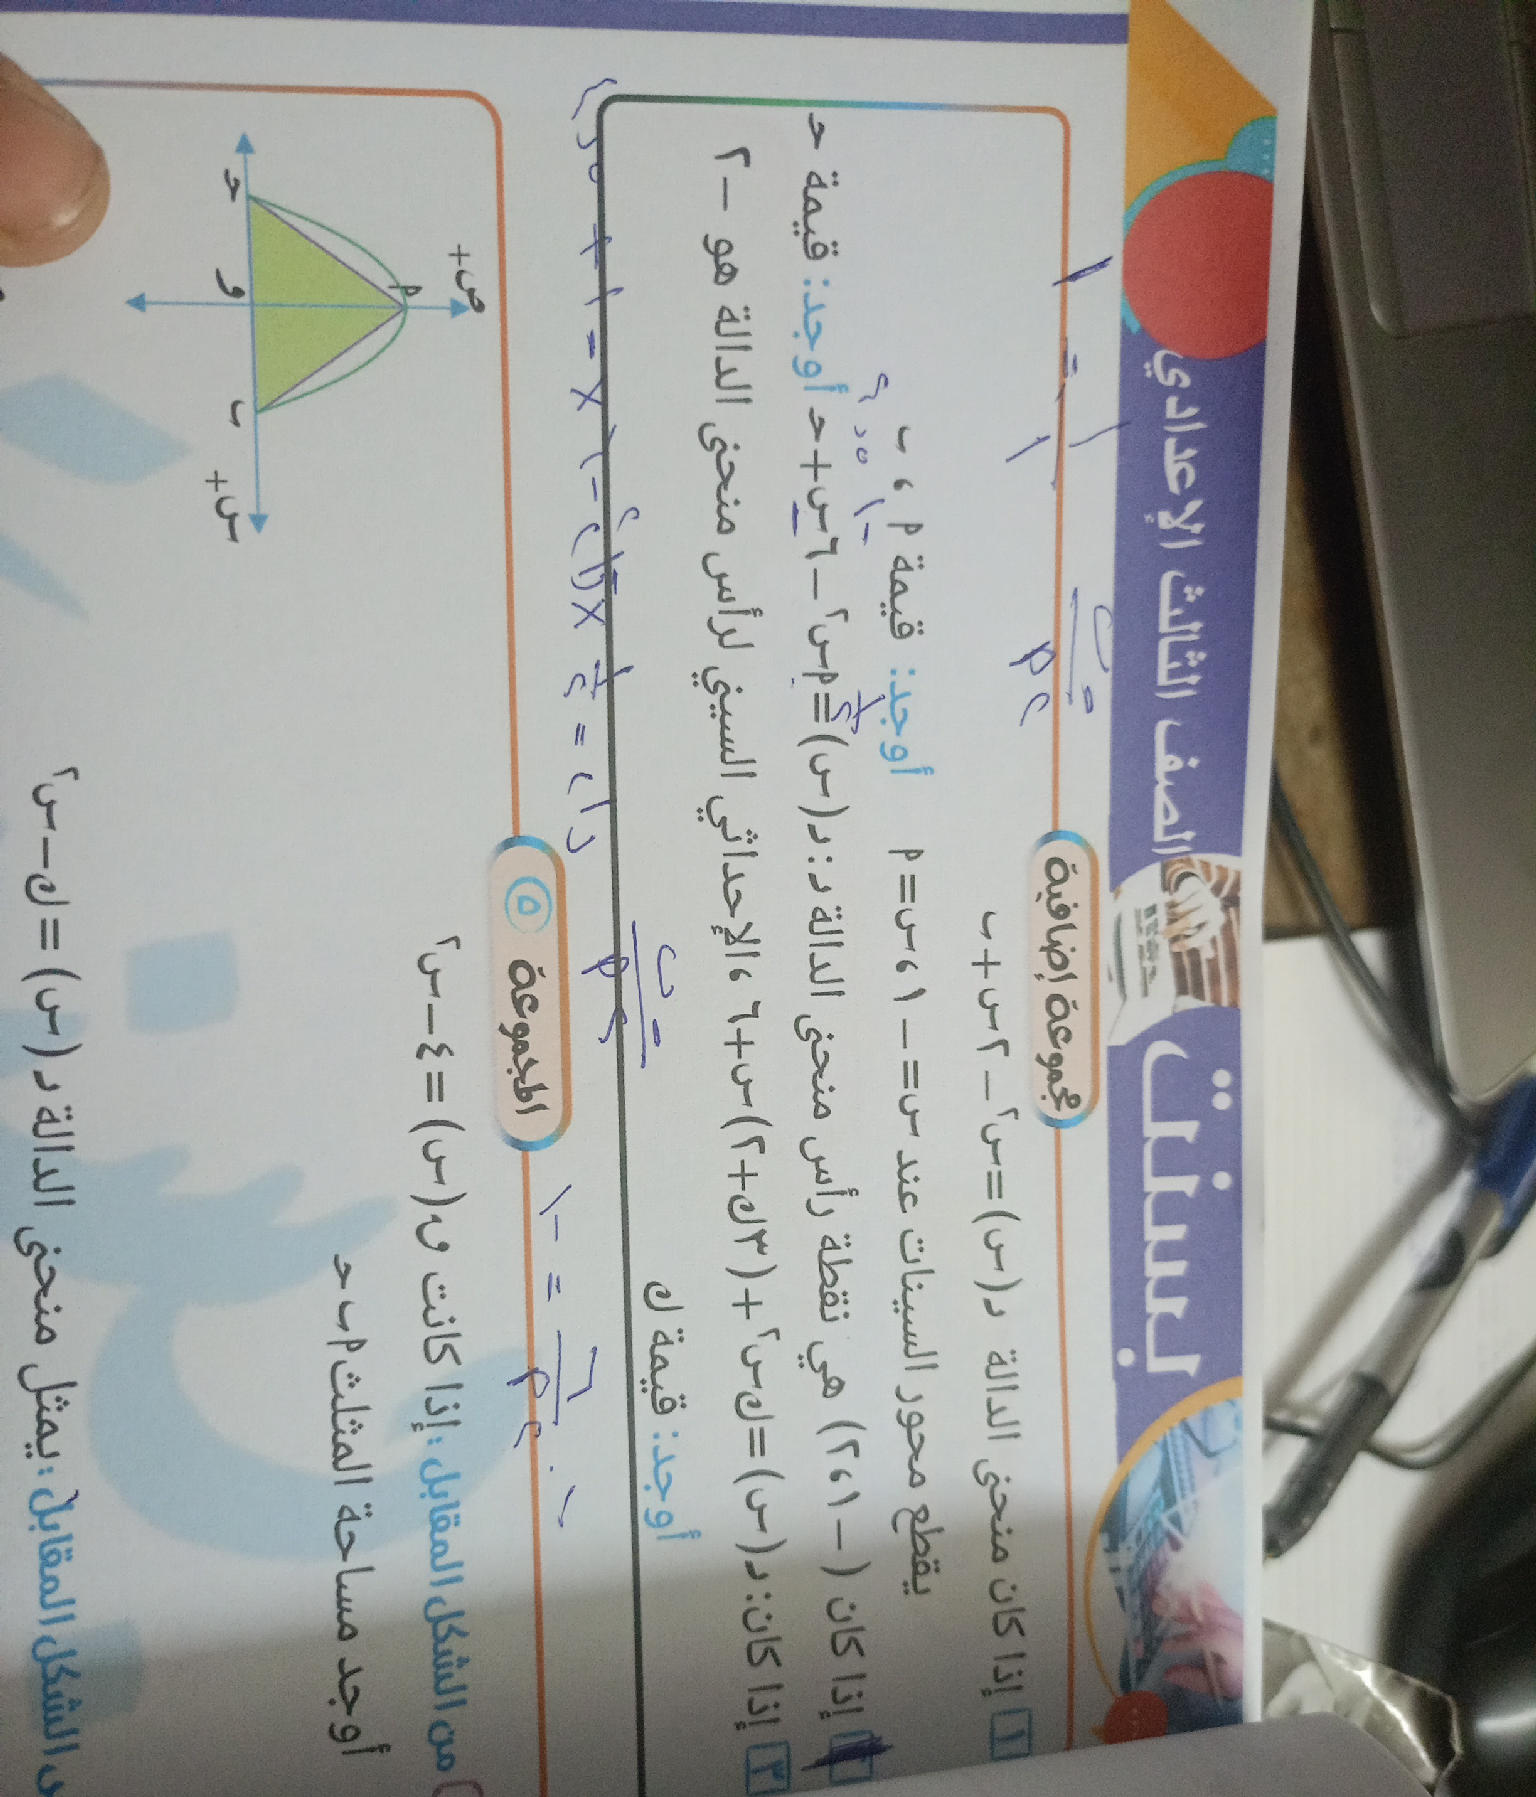 الصف الثالث الإعدادي
مجموعة إضافية
١ إذا كان منحنى الدالة د(س)=س٢−٢س+ب
يقطع محور السينات عند س=−١، س=م أوجد: قيمة م، ب
٢ إذا كان (−١،٢) هي نقطة رأس منحنى الدالة د: د(س)=مس٢−٦س+حـ أوجد: قيمة حـ
٣ إذا كان: د(س)=ك س٢+(٣ك+٢)س+٦، الإحداثي السيني لرأس منحنى الدالة هو −٢
أوجد: قيمة ك
المجموعة ٥
من الشكل المقابل: إذا كانت ق(س)=٤−س٢
أوجد مساحة المثلث م ب حـ
ص+
م
حـ
و
ب
س+
الشكل المقابل: يمثل منحنى الدالة د(س)=ك−س٢